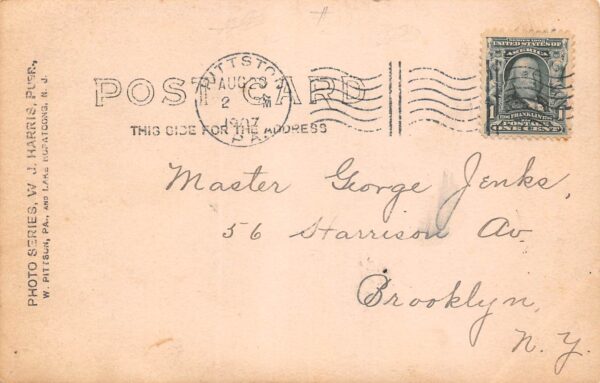 POST CARD
THIS SIDE FOR THE ADDRESS
PITTSTON
AUG 23
2
1907
PA.
UNITED STATES OF AMERICA
FRANKLIN
POSTAGE
1 ONE CENT 1
Master George Jenks,
56 Harrison Av.
Brooklyn,
N. Y.
PHOTO SERIES, W. J. HARRIS, PUBR.,
W. PITTSON, PA., AND LAKE HOPATCONG, N. J.